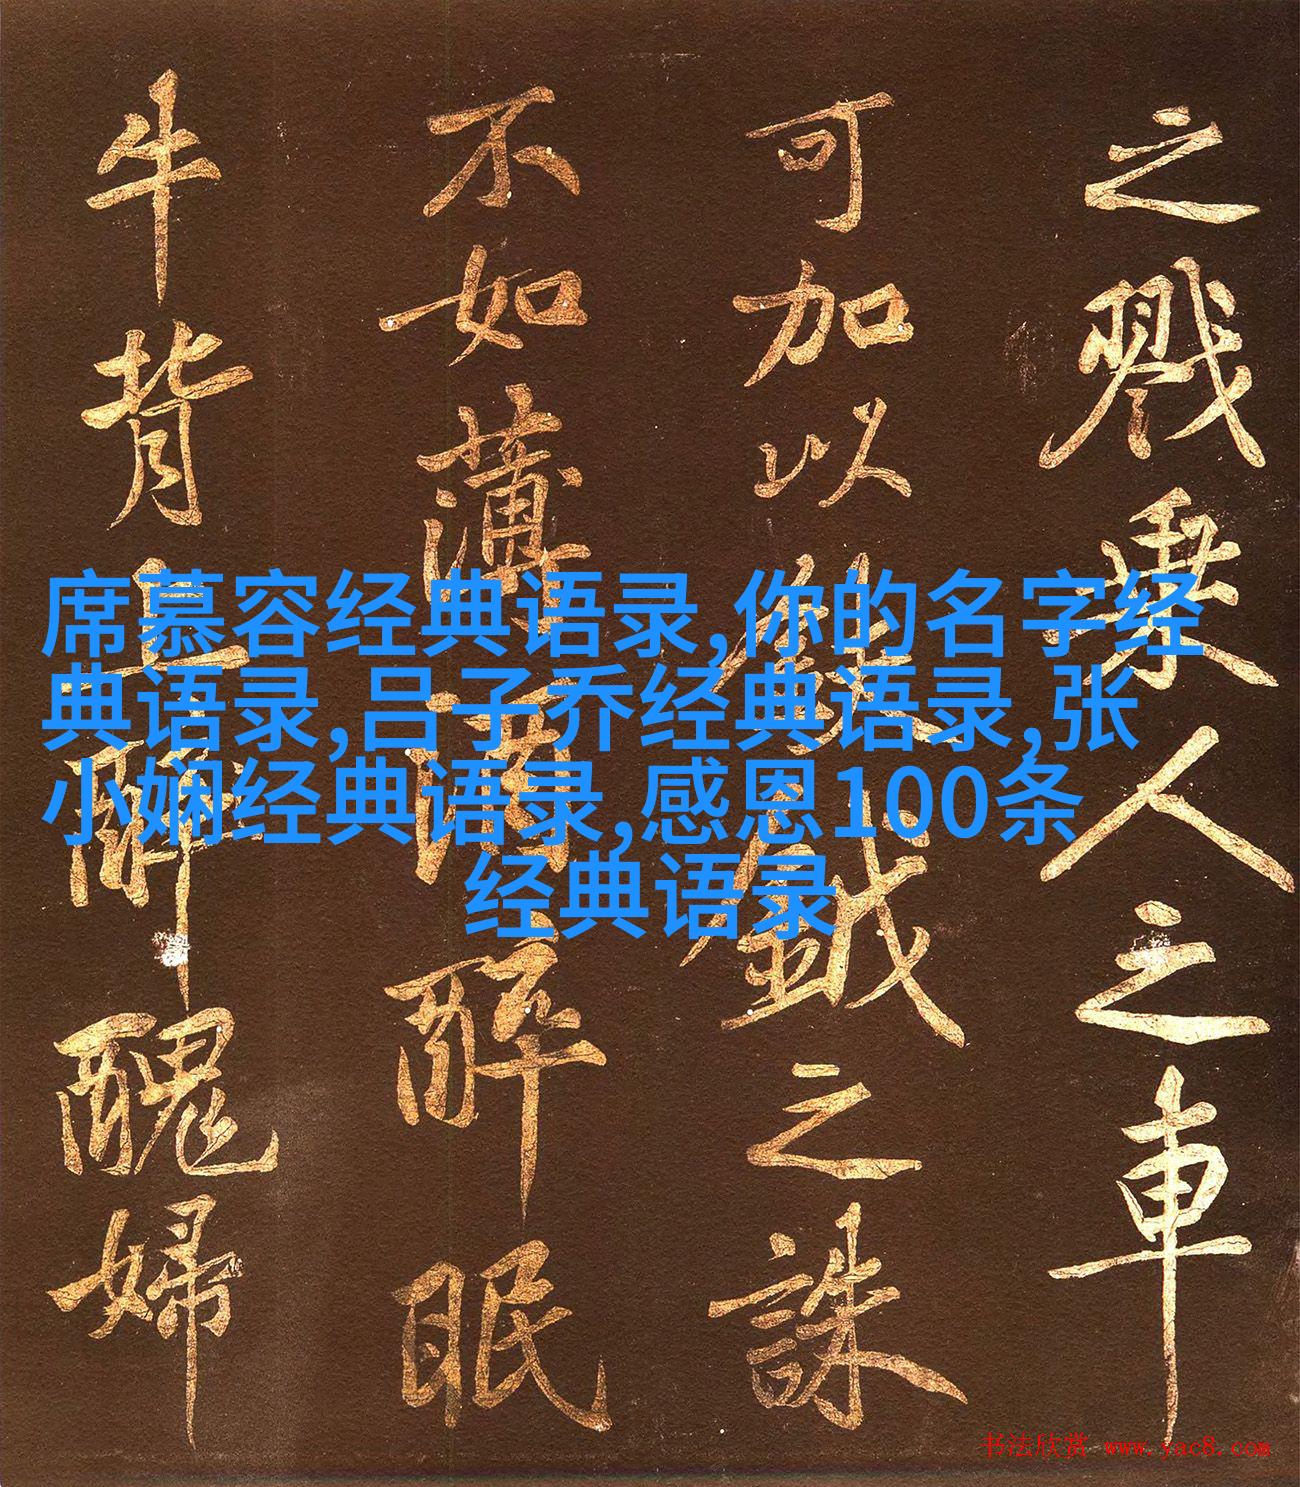 之戮乘人之車
可加以鈇鉞之誅
不如蒲醉眠
牛背上醜婦
席慕容经典语录,你的名字经
典语录,吕子乔经典语录,张
小娴经典语录,感恩100条
经典语录
书法欣赏 www.yac8.com